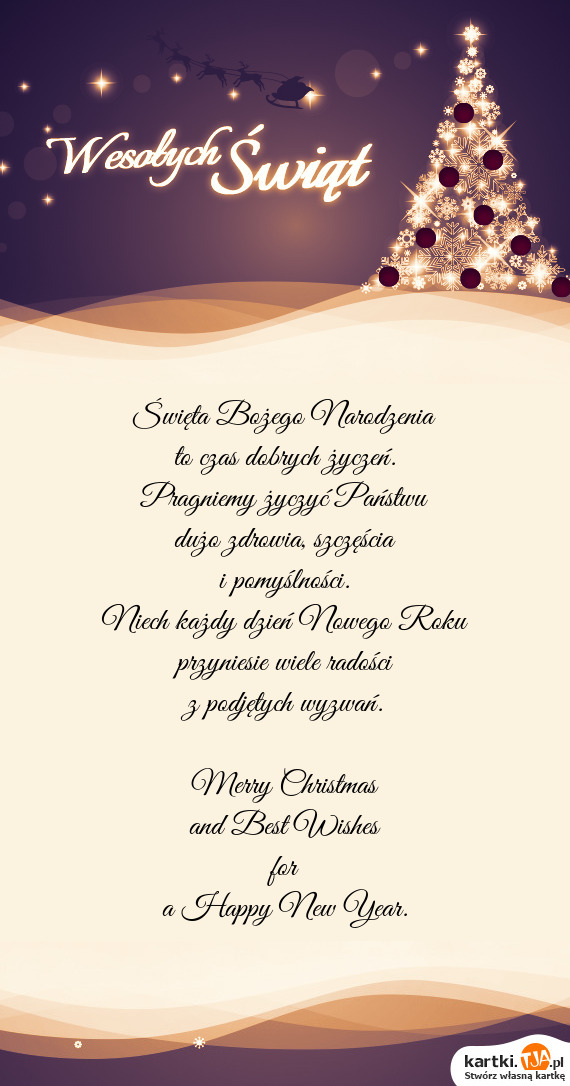 Wesołych Świąt
Święta Bożego Narodzenia
to czas dobrych życzeń.
Pragniemy życzyć Państwu
dużo zdrowia, szczęścia
i pomyślności.
Niech każdy dzień Nowego Roku
przyniesie wiele radości
z podjętych wyzwań.
Merry Christmas
and Best Wishes
for
a Happy New Year.
kartki.TJA.pl
Stwórz własną kartkę